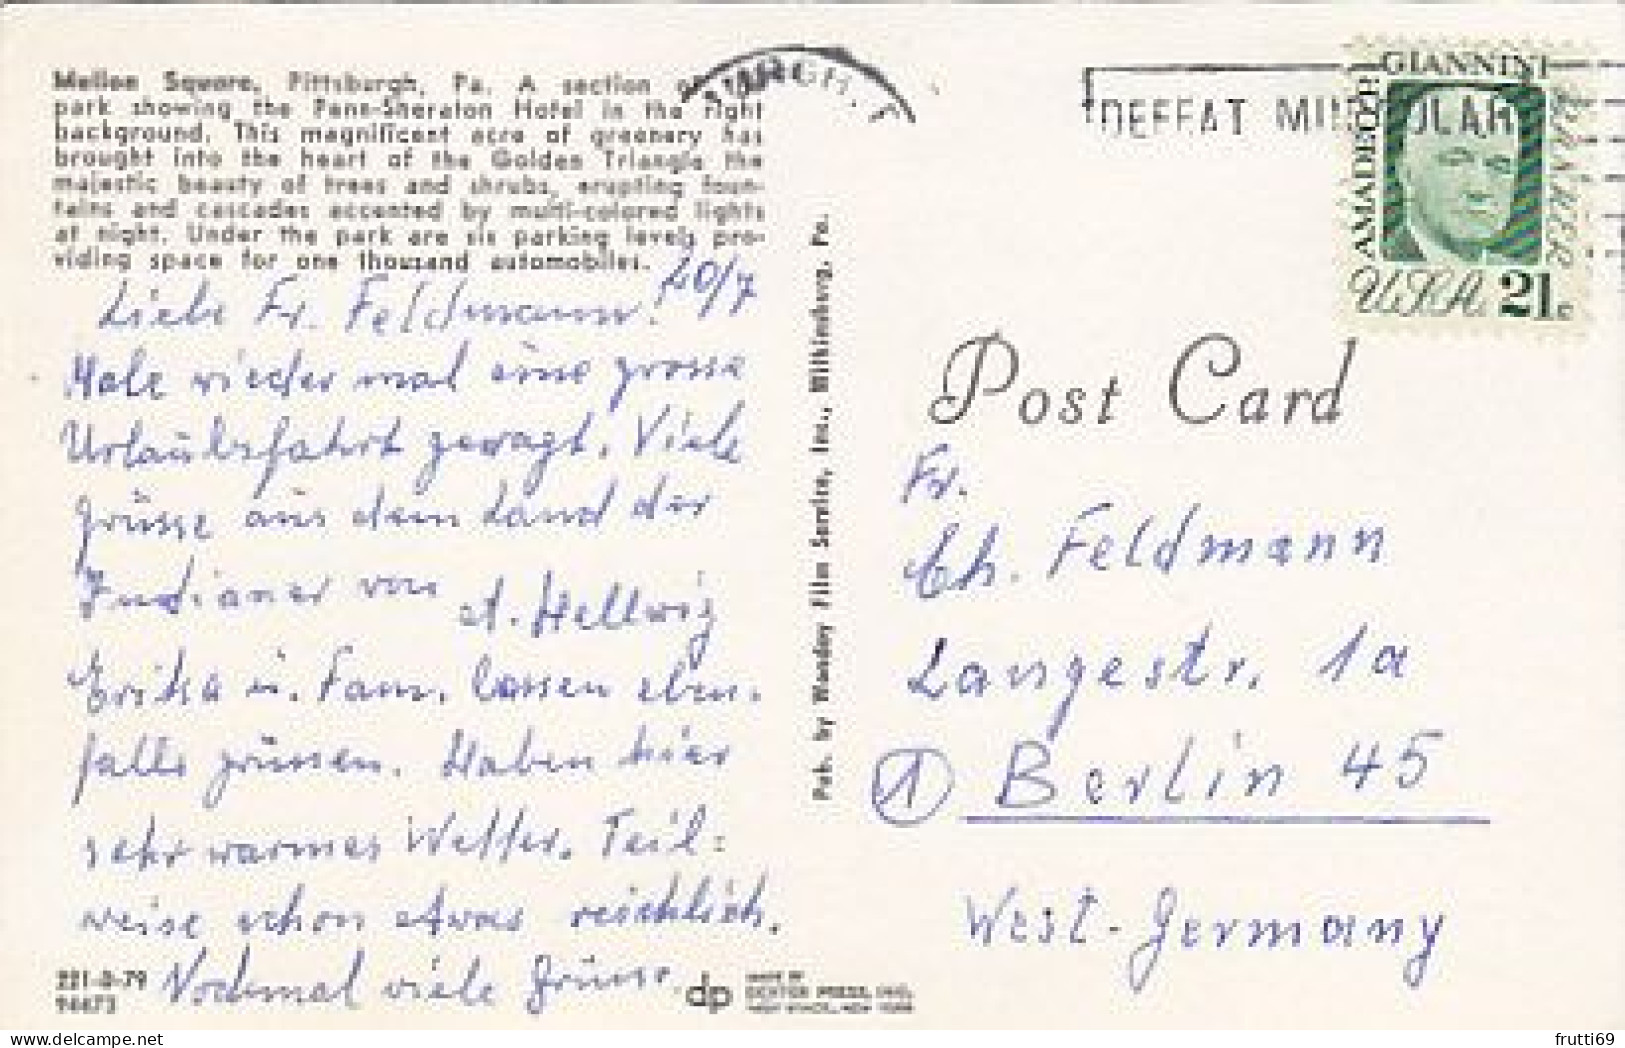 Mellon Square, Pittsburgh, Pa. A section of
park showing the Penn-Sheraton Hotel in the right
background. This magnificent acre of greenery has
brought into the heart of the Golden Triangle the
majestic beauty of trees and shrubs, erupting foun-
tains and cascades accented by multi-colored lights
at night. Under the park are six parking levels pro-
viding space for one thousand automobiles.
20/7
Liebe Fr. Feldmann!
Habe wieder mal eine grosse
Urlaubsfahrt gewagt. Viele
Grüsse aus dem Land der
Indianer von A. Hellwig
Erika u. Fam. lassen eben-
falls grüssen. Haben hier
sehr warmes Wetter. Teil=
weise schon etwas reichlich.
Nochmal viele Grüsse.
221-D-79
94473
dp
MADE BY
DEXTER PRESS, INC.
WEST NYACK, NEW YORK
Pub. by Wonday Film Service, Inc., Wilkinsburg, Pa.
DEFEAT MUSCULAR
AMADEO P. GIANNINI BANKER
USA 21c
Post Card
Fr.
Ch. Feldmann
Langestr. 1a
① Berlin 45
West-Germany
frutti69